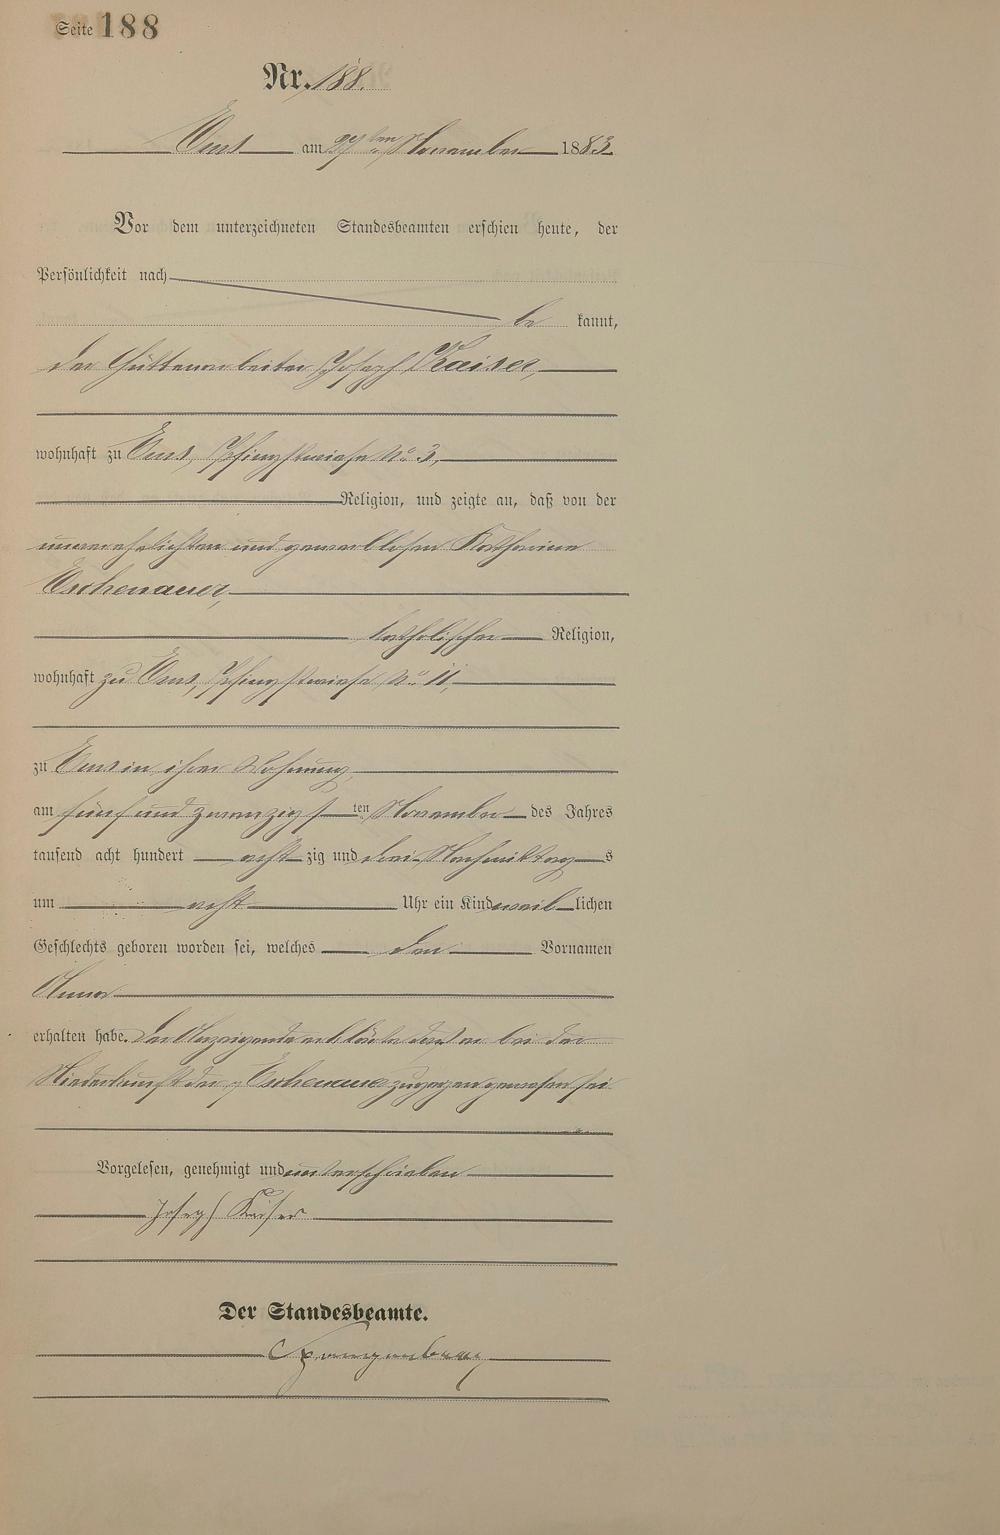 Seite 188
Nr. 188.
Ems am 27ten November 1883
Vor dem unterzeichneten Standesbeamten erschien heute, der
Persönlichkeit nach
be kannt,
der Hüttenarbeiter Joseph Kaiser,
wohnhaft zu Ems, Pfingstwiese No 3,
Religion, und zeigte an, daß von der
unverehelichten und gewerblosen Katharine
Eschenauer,
katholischer Religion,
wohnhaft zu Ems, Pfingstwiese No 11,
zu Ems in ihrer Wohnung,
am fünf und zwanzigsten November des Jahres
tausend acht hundert acht zig und drei Nachmittags
um acht Uhr ein Kind weiblichen
Geschlechts geboren worden sei, welches den Vornamen
Anna
erhalten habe. Der Anzeigende erklärte daß er bei der
Niederkunft der Eschenauer zugegen gewesen sei
Vorgelesen, genehmigt und unterschrieben
Joseph Kaiser
Der Standesbeamte.
Spangenberg